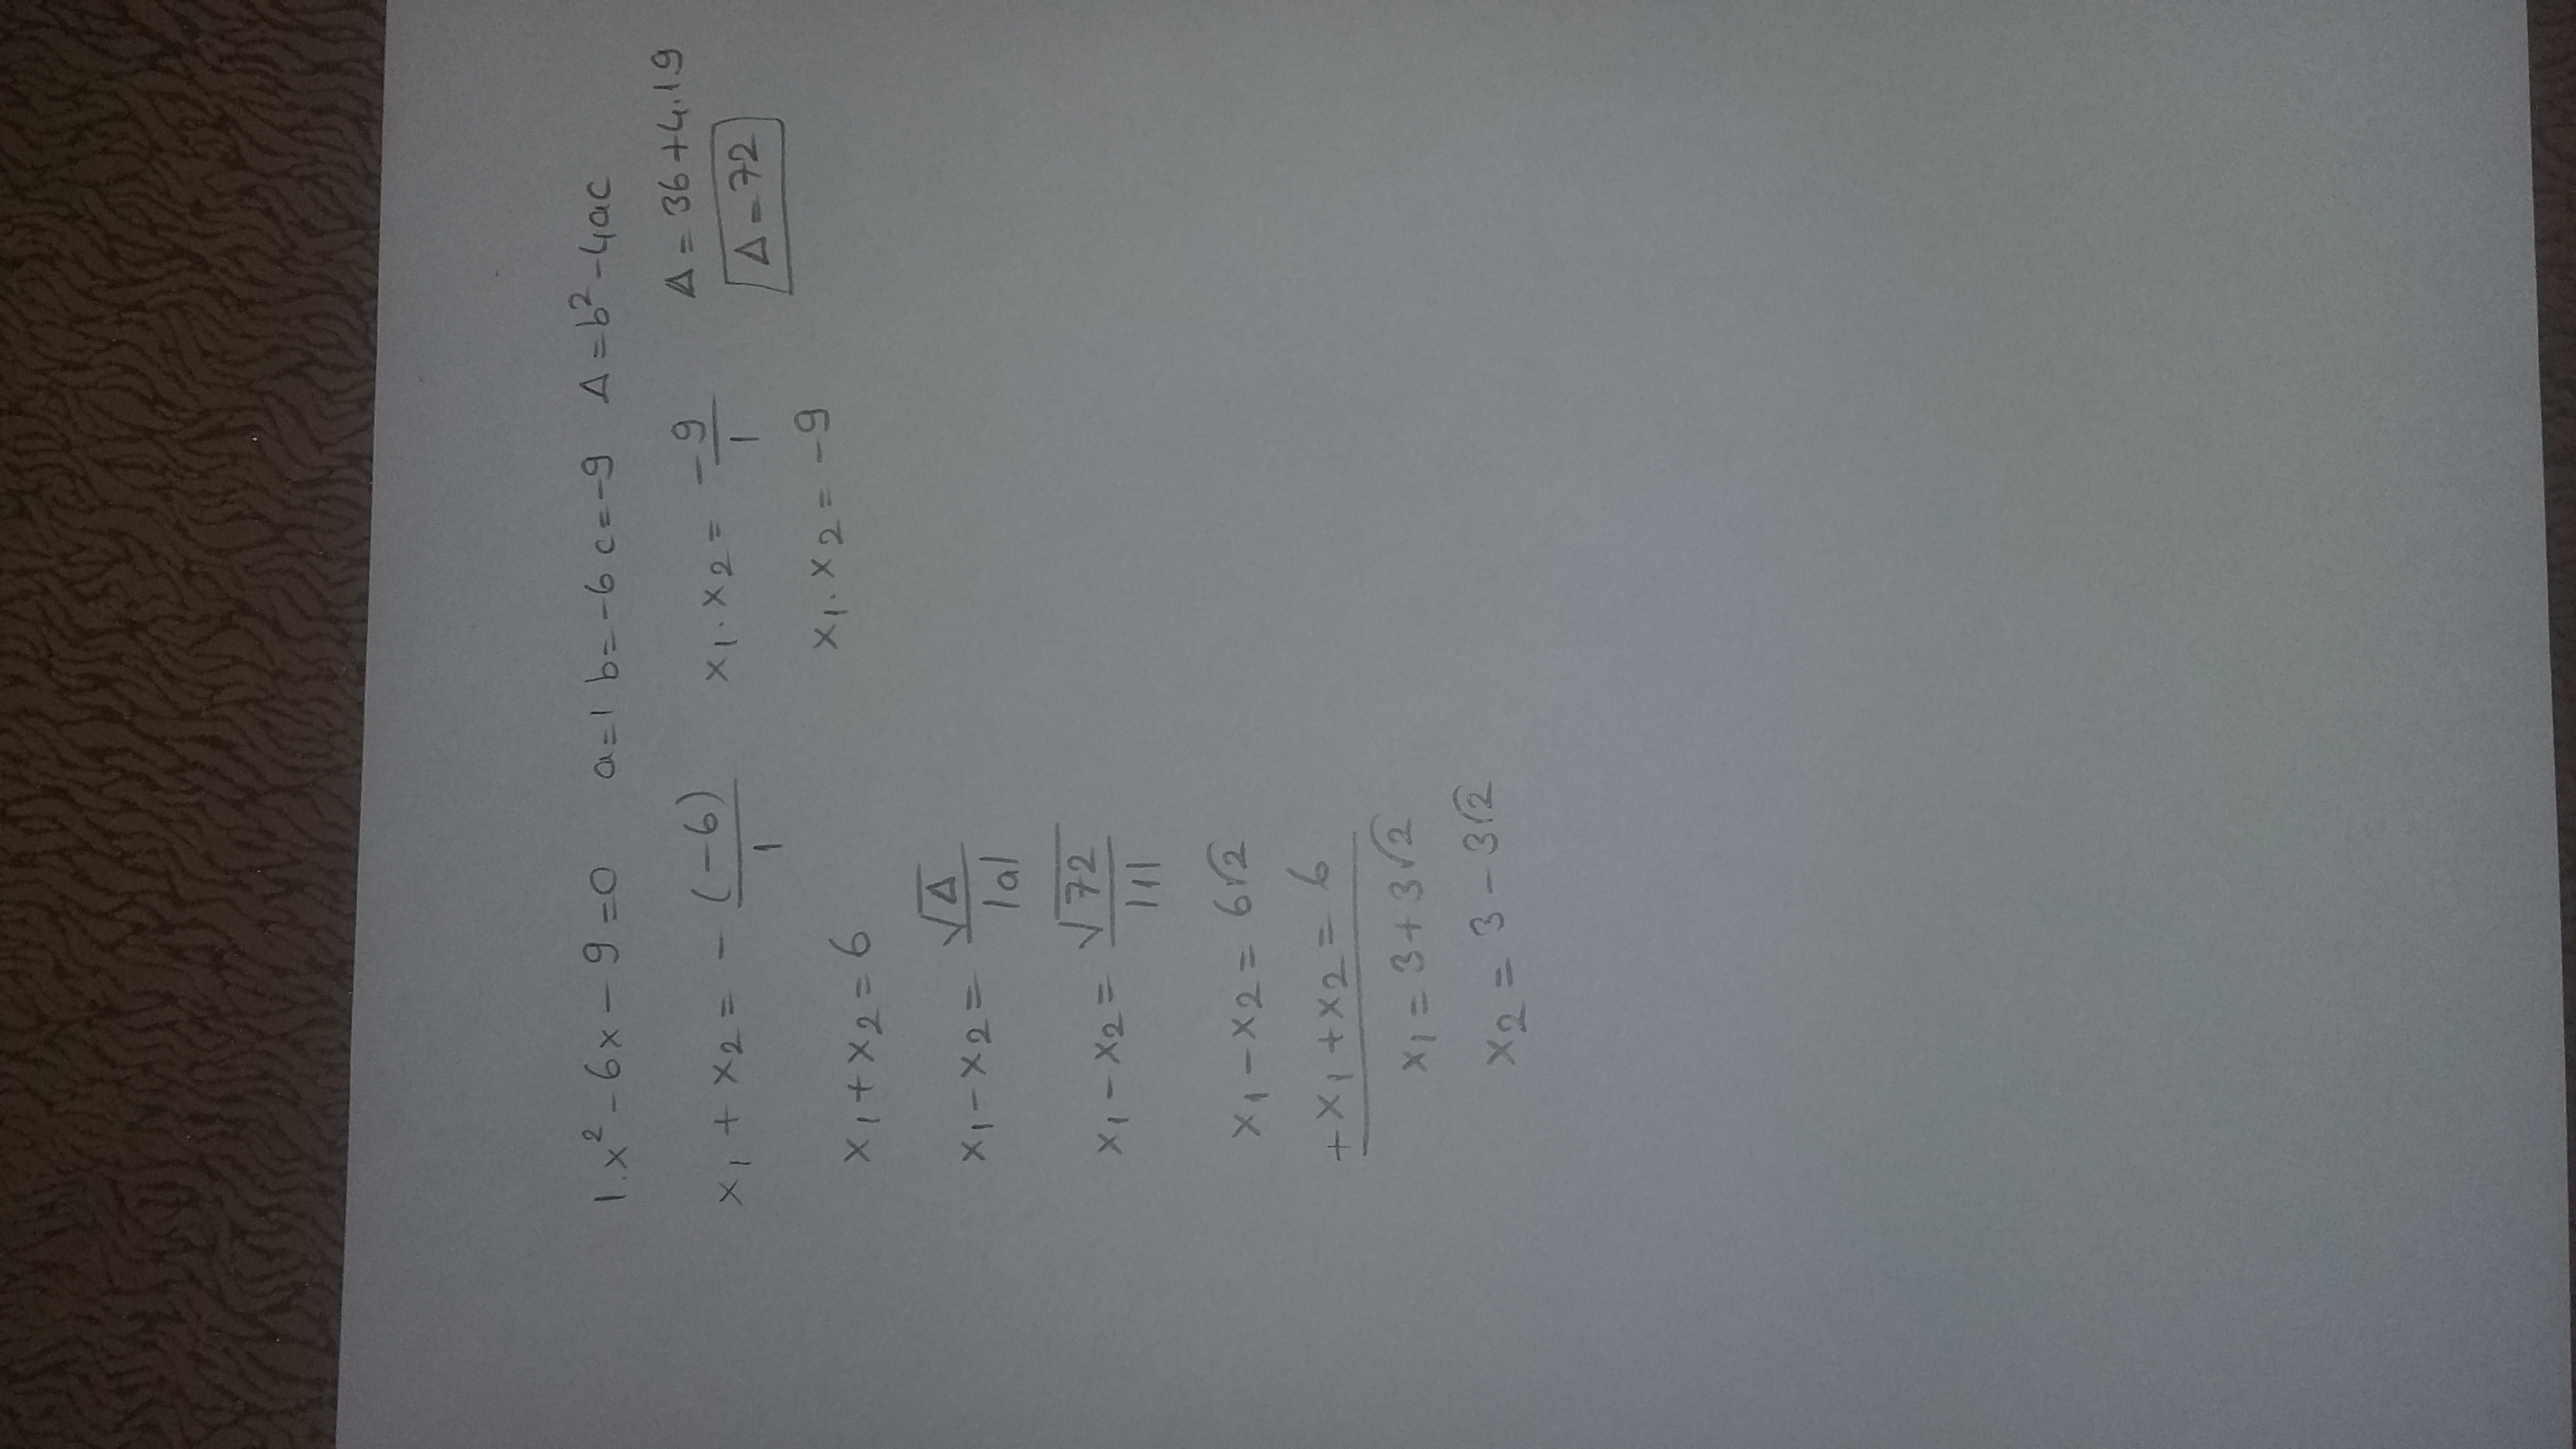 1.x² - 6x - 9 = 0 a=1 b=-6 c=-9 Δ=b²-4ac
x₁ + x₂ = - (-6)/1 x₁.x₂ = -9/1 Δ = 36+4.1.9
x₁ + x₂ = 6 x₁.x₂ = -9 Δ = 72
x₁ - x₂ = √Δ/|a|
x₁ - x₂ = √72/|1|
x₁ - x₂ = 6√2
+ x₁ + x₂ = 6
x₁ = 3 + 3√2
x₂ = 3 - 3√2